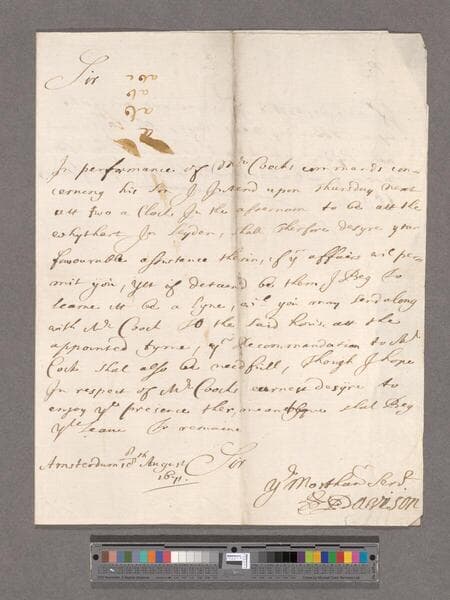 Sir
abc
ab
ab
a
In performance of Mr Coocks commands con-
cerning his son I Intend upon Thursday next
att two a Clock In the afternoon to be att the
whythart In Leyden, shall therfore desyre your
favourable assistance therin, if yr affairs will per-
mit you, yett if detaend be them I Beg To
learne itt be a lyne, and you may send along
with Mr Coock To the said house att the
appointed tyme, yr Recommandation to Mr
Cock shal also be needfull, Though I hope
In respect of Mr Coocks earnest desyre to
enjoy yr presence ther, meantyme shal Beg
yr Leave To remaine
Sir
Amsterdam 18th August
1671.
yr Most hum Servt
Davison